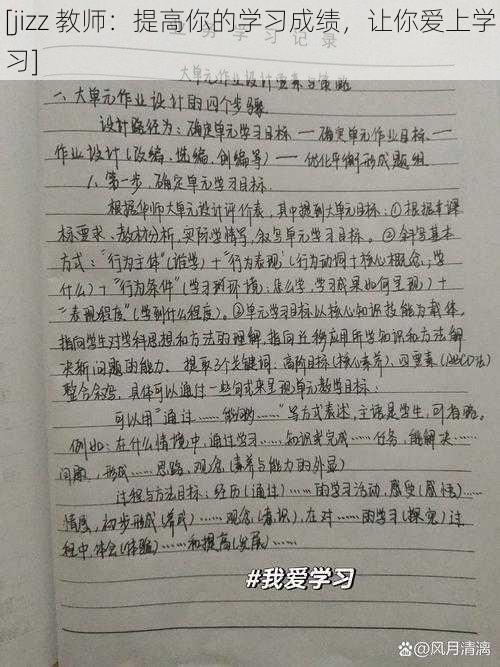 [jizz 教师：提高你的学习成绩，让你爱上学
习]
业务学习记录
大单元作业设计要素与策略
一、大单元作业设计的四个步骤
设计路径为：确定单元学习目标 — 确定单元作业目标 —
作业设计（改编、选编、创编等）— 优化平衡形成题组
1、第一步，确定单元学习目标
根据华师大单元设计评价表，其中提到大单元目标：①根据课
标要求、教材分析、实际学情等，叙写单元学习目标。②叙写基本
方式："行为主体"（谁学）+"行为表现"（行为动词+核心概念：学
什么）+"行为条件"（学习到环境：怎么学，学习成果如何呈现）+
"表现程度"（学到什么程度）。③单元学习目标以核心知识技能为载体，
指向学生对学科思想和方法的理解，指向迁移应用所学知识和方法解
决新问题的能力。提取3个关键词：高阶目标（核心素养）、四要素（ABCD法）
整合叙写，具体可以通过一些句式来呈现单元教学目标：
可以用"通过……能够……"等方式表述，主语是学生，可省略。
例如：在什么情境中，通过学习……知识或完成……任务，能解决……
问题，形成……思路、观念，（素养与能力的外显）
过程与方法目标：经历（通过）……的学习活动，感受（感悟）……
情感，初步形成（养成）……观念（意识），在对……的学习（探究）过
程中，体会（体验）……和提高（发展）……
#我爱学习
@风月清漓